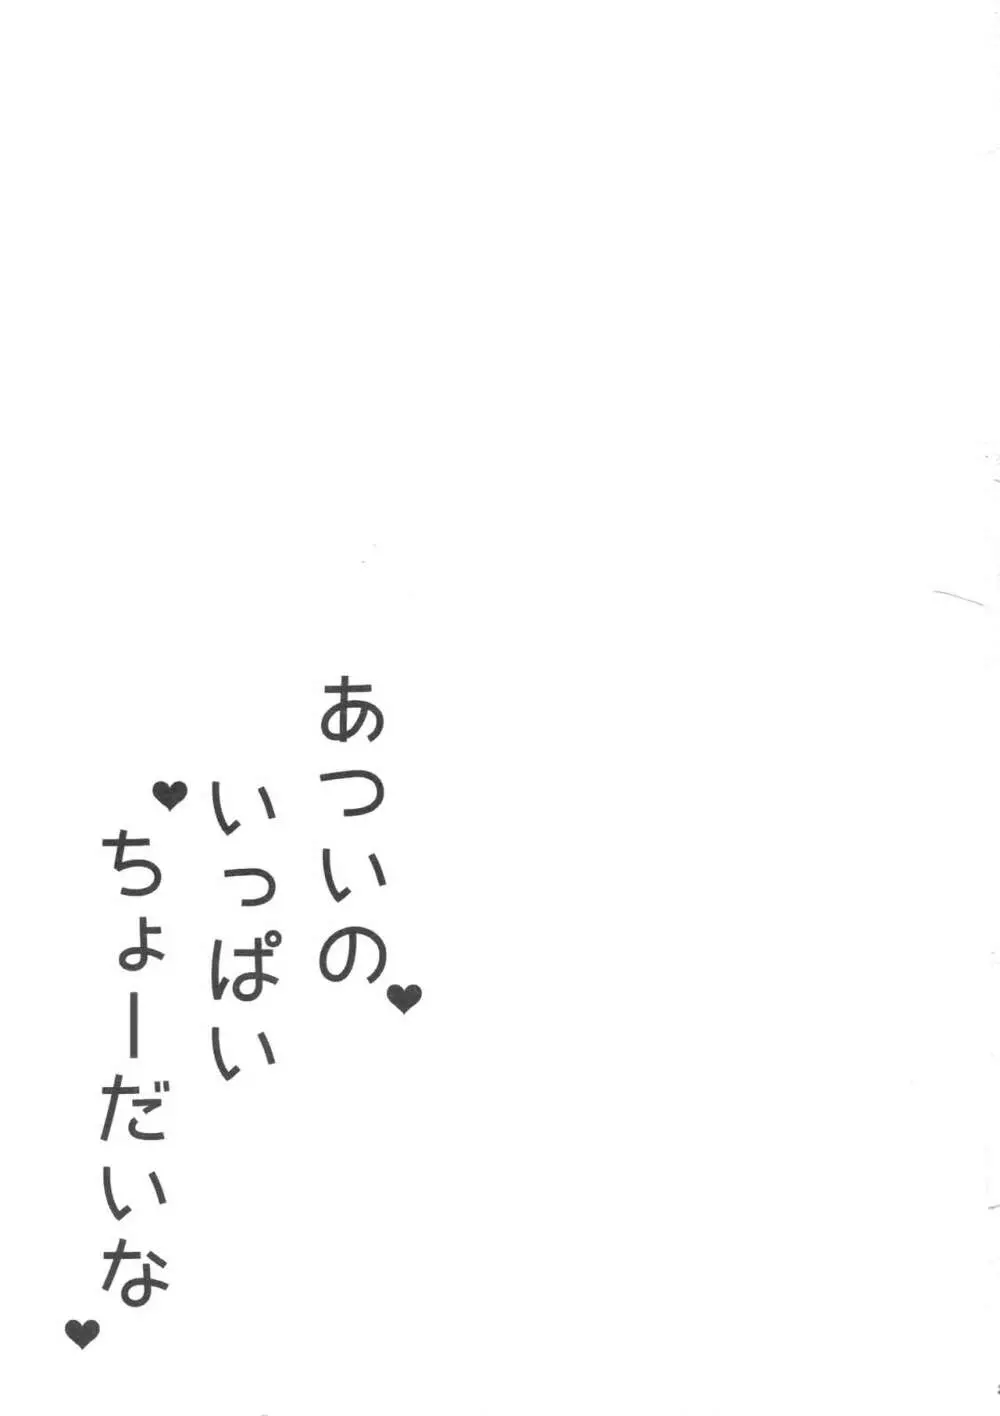 あついの♥
いっぱい
♥ちょーだいな♥